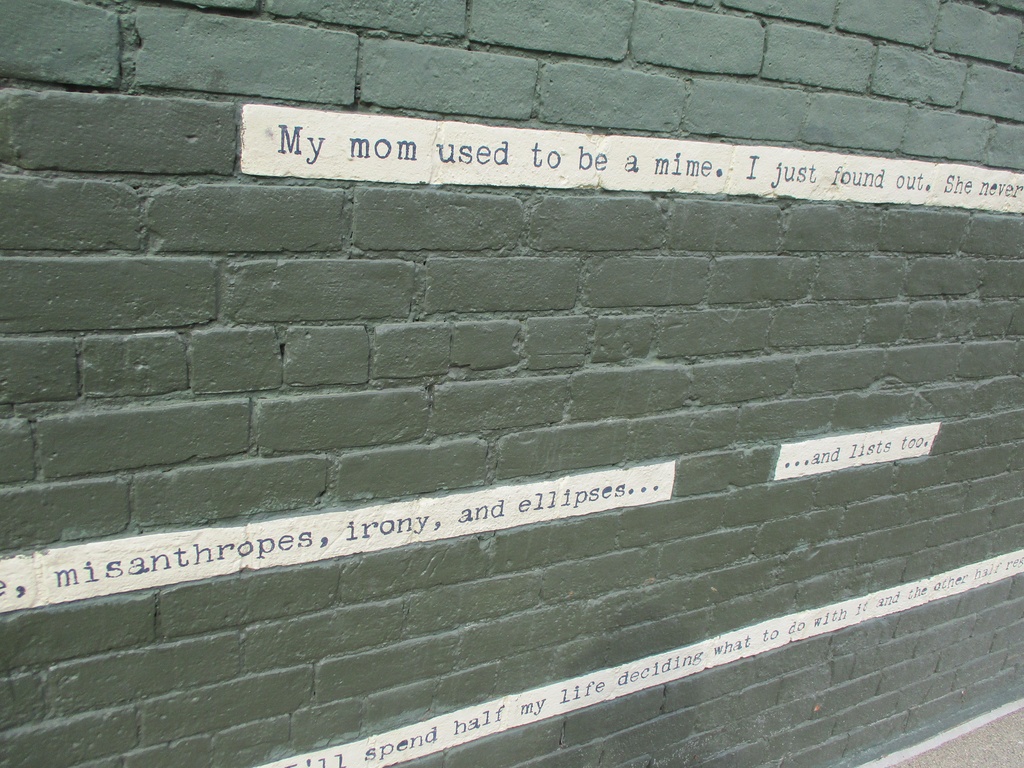 My mom used to be a mime. I just found out. She never
misanthropes, irony, and ellipses...
...and lists too.
I'll spend half my life deciding what to do with it and the other half